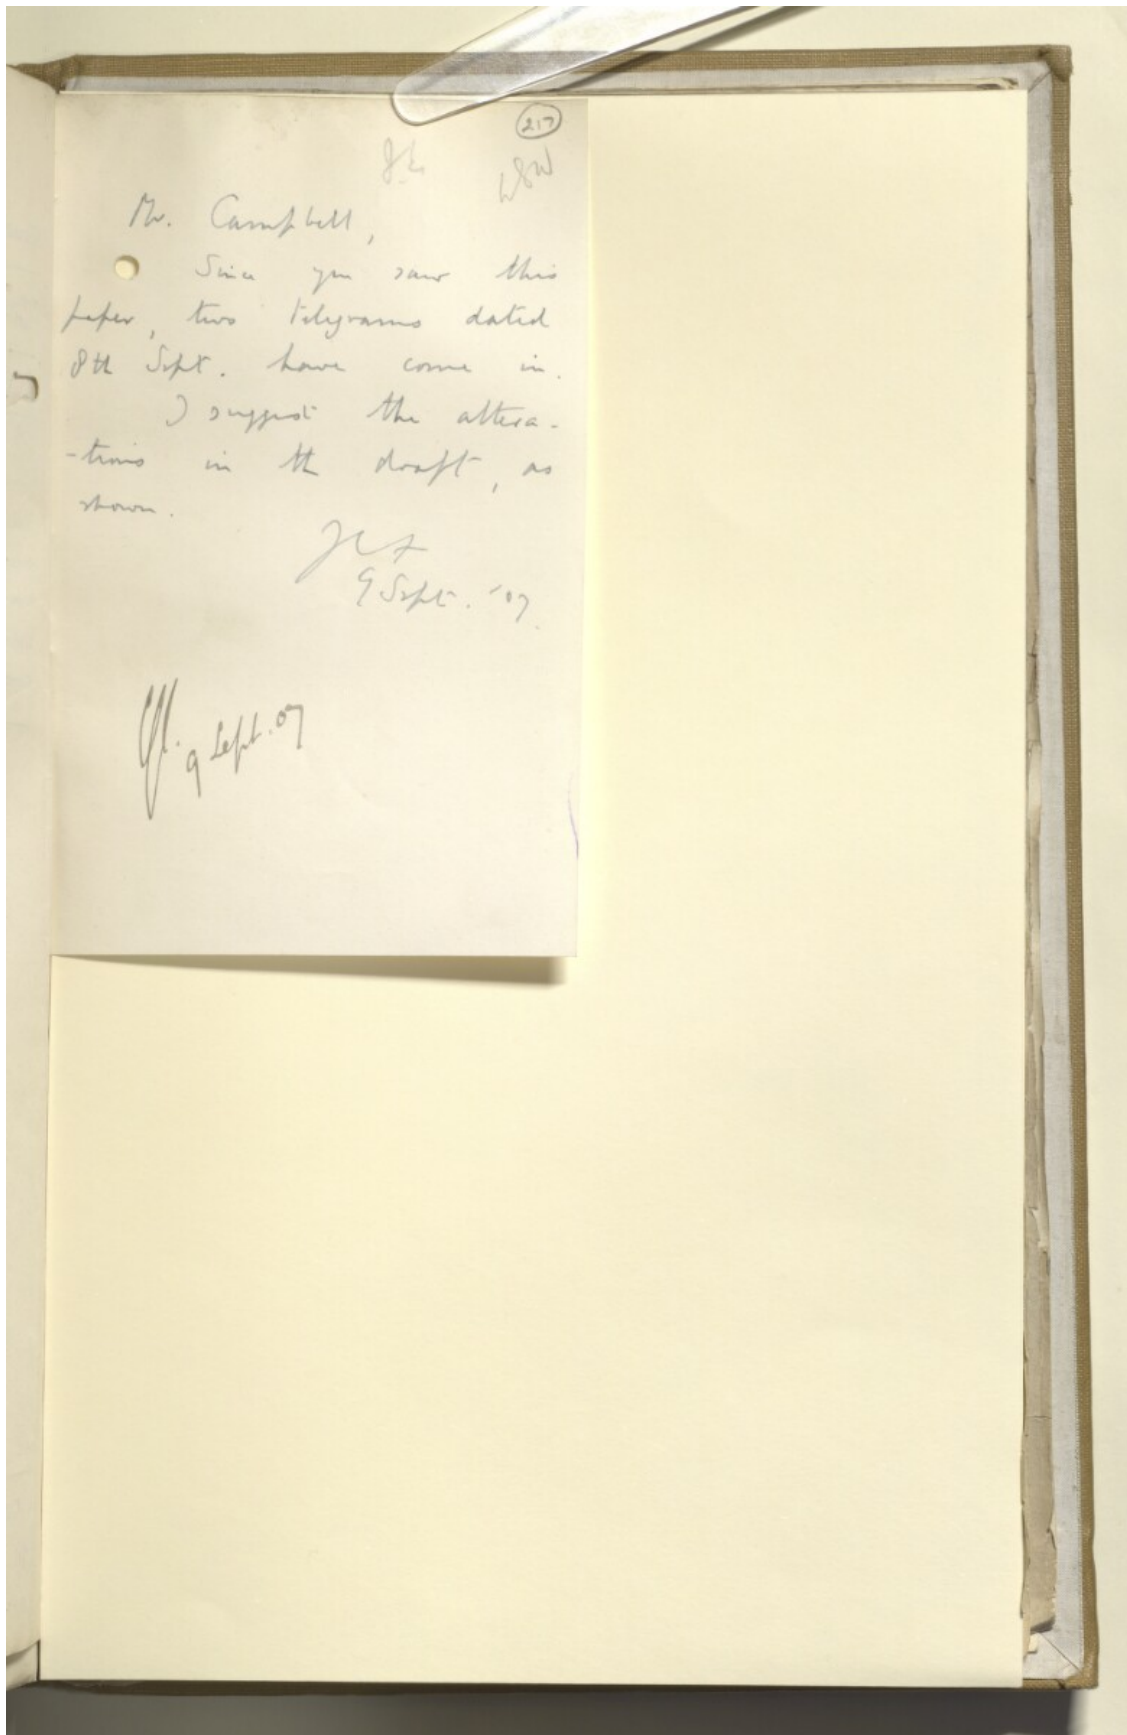 217
Mr. Campbell,
Since you saw this
paper, two telegrams dated
8th Sept. have come in.
I suggest the altera-
-tions in the draft, as
shown.
9 Sept. '07.
9 Sept. 07